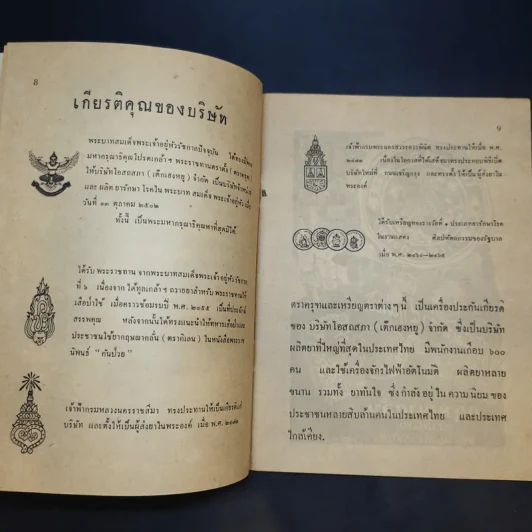 ๘
เกียรติคุณของบริษัท
พระบาทสมเด็จพระเจ้าอยู่หัวรัชกาลปัจจุบัน ได้ทรงมี
มหากรุณาธิคุณโปรดเกล้าฯ พระราชทานตราตั้ง
ให้บริษัทโอสถสภา (เต๊กเฮงหยู) จำกัด เป็นบริษัท
และ ผลิต ยารักษา โรคใน พระบาท สมเด็จ พระเจ้าอยู่หัว เมื่อ
วันที่ ๑๓ ตุลาคม ๒๕๐๒
ทั้งนี้ เป็นพระมหากรุณาธิคุณหาที่สุดมิได้
ได้รับ พระราชทาน จากพระบาทสมเด็จพระเจ้าอยู่หัวรัชกาล
ที่ ๖ เนื่องจาก ได้ทูลเกล้าฯ ถวายยาสำหรับ พระราชทานให้
เสือป่าใช้ เมื่อคราวซ้อมรบปี พ.ศ.
สรรพคุณ หลังจากนั้นได้ทรงแนะนำให้ทหารเสือป่าและ
ประชาชนใช้ยากฤษณากลั่น (ตรากิเลน) ในหนังสือพระราช
นิพนธ์ "กันป่วย"
เจ้าฟ้ากรมหลวงนครราชสีมา ทรงประทานให้เป็นเกียรติแก่
บริษัท และตั้งให้เป็นผู้ส่งยาในพระองค์ เมื่อ พ.ศ.
๙
เจ้าฟ้ากรมพระนครสวรรค์วรพินิต ทรงประทานให้เมื่อ พ.ศ.
เนื่องในโอกาสที่ได้เสด็จมาทรงประกอบพิธีเปิด
บริษัทใหม่ที่ ถนนเจริญกรุง และทรงตั้ง ให้เป็น ผู้ส่งยาใน
พระองค์
ได้รับเหรียญทองรางวัลที่ ๑ ประเภทยารักษาโรค
ในงานแสดง ศิลปหัตถกรรมของรัฐบาล
เมื่อ พ.ศ.
ตราครุฑและเหรียญตราต่างๆ นี้ เป็นเครื่องประกันเกียรติ
ของ บริษัท โอสถสภา (เต๊กเฮงหยู) จำกัด ซึ่งเป็นบริษัท
ผลิตยาที่ใหญ่ที่สุดในประเทศไทย มีพนักงานเกือบ ๖๐๐
คน และใช้เครื่องจักรไฟฟ้าอัตโนมัติ ผลิตยาหลาย
ขนาน รวมทั้ง ยาทันใจ ซึ่ง กำลัง อยู่ ใน ความ นิยม ของ
ประชาชนหลายสิบล้านคนในประเทศไทย และประเทศ
ใกล้เคียง.